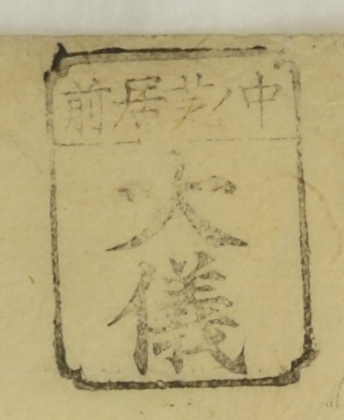 中芝居前
大儀